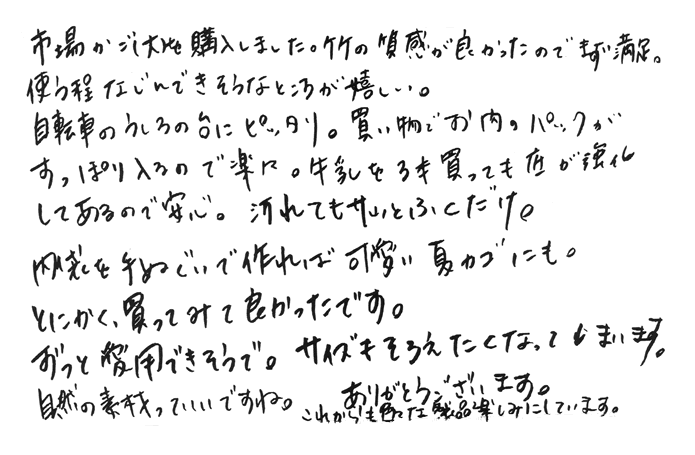 市場かご(大)を購入しました。竹の質感が良かったのでまず満足。
使う程なじんできそうなところが嬉しい。
自転車のうしろの台にピッタリ。買い物でお肉のパックが
すっぽり入るので楽々。牛乳を3本買っても底が強化
してあるので安心。汚れてもサッとふくだけ。
内袋を手ぬぐいで作れば可愛い夏カゴにも。
とにかく、買ってみて良かったです。
ずっと愛用できそうで。サイズをそろえたくなってしまいます。
自然の素材っていいですね。ありがとうございます。
これからも色々な製品楽しみにしています。